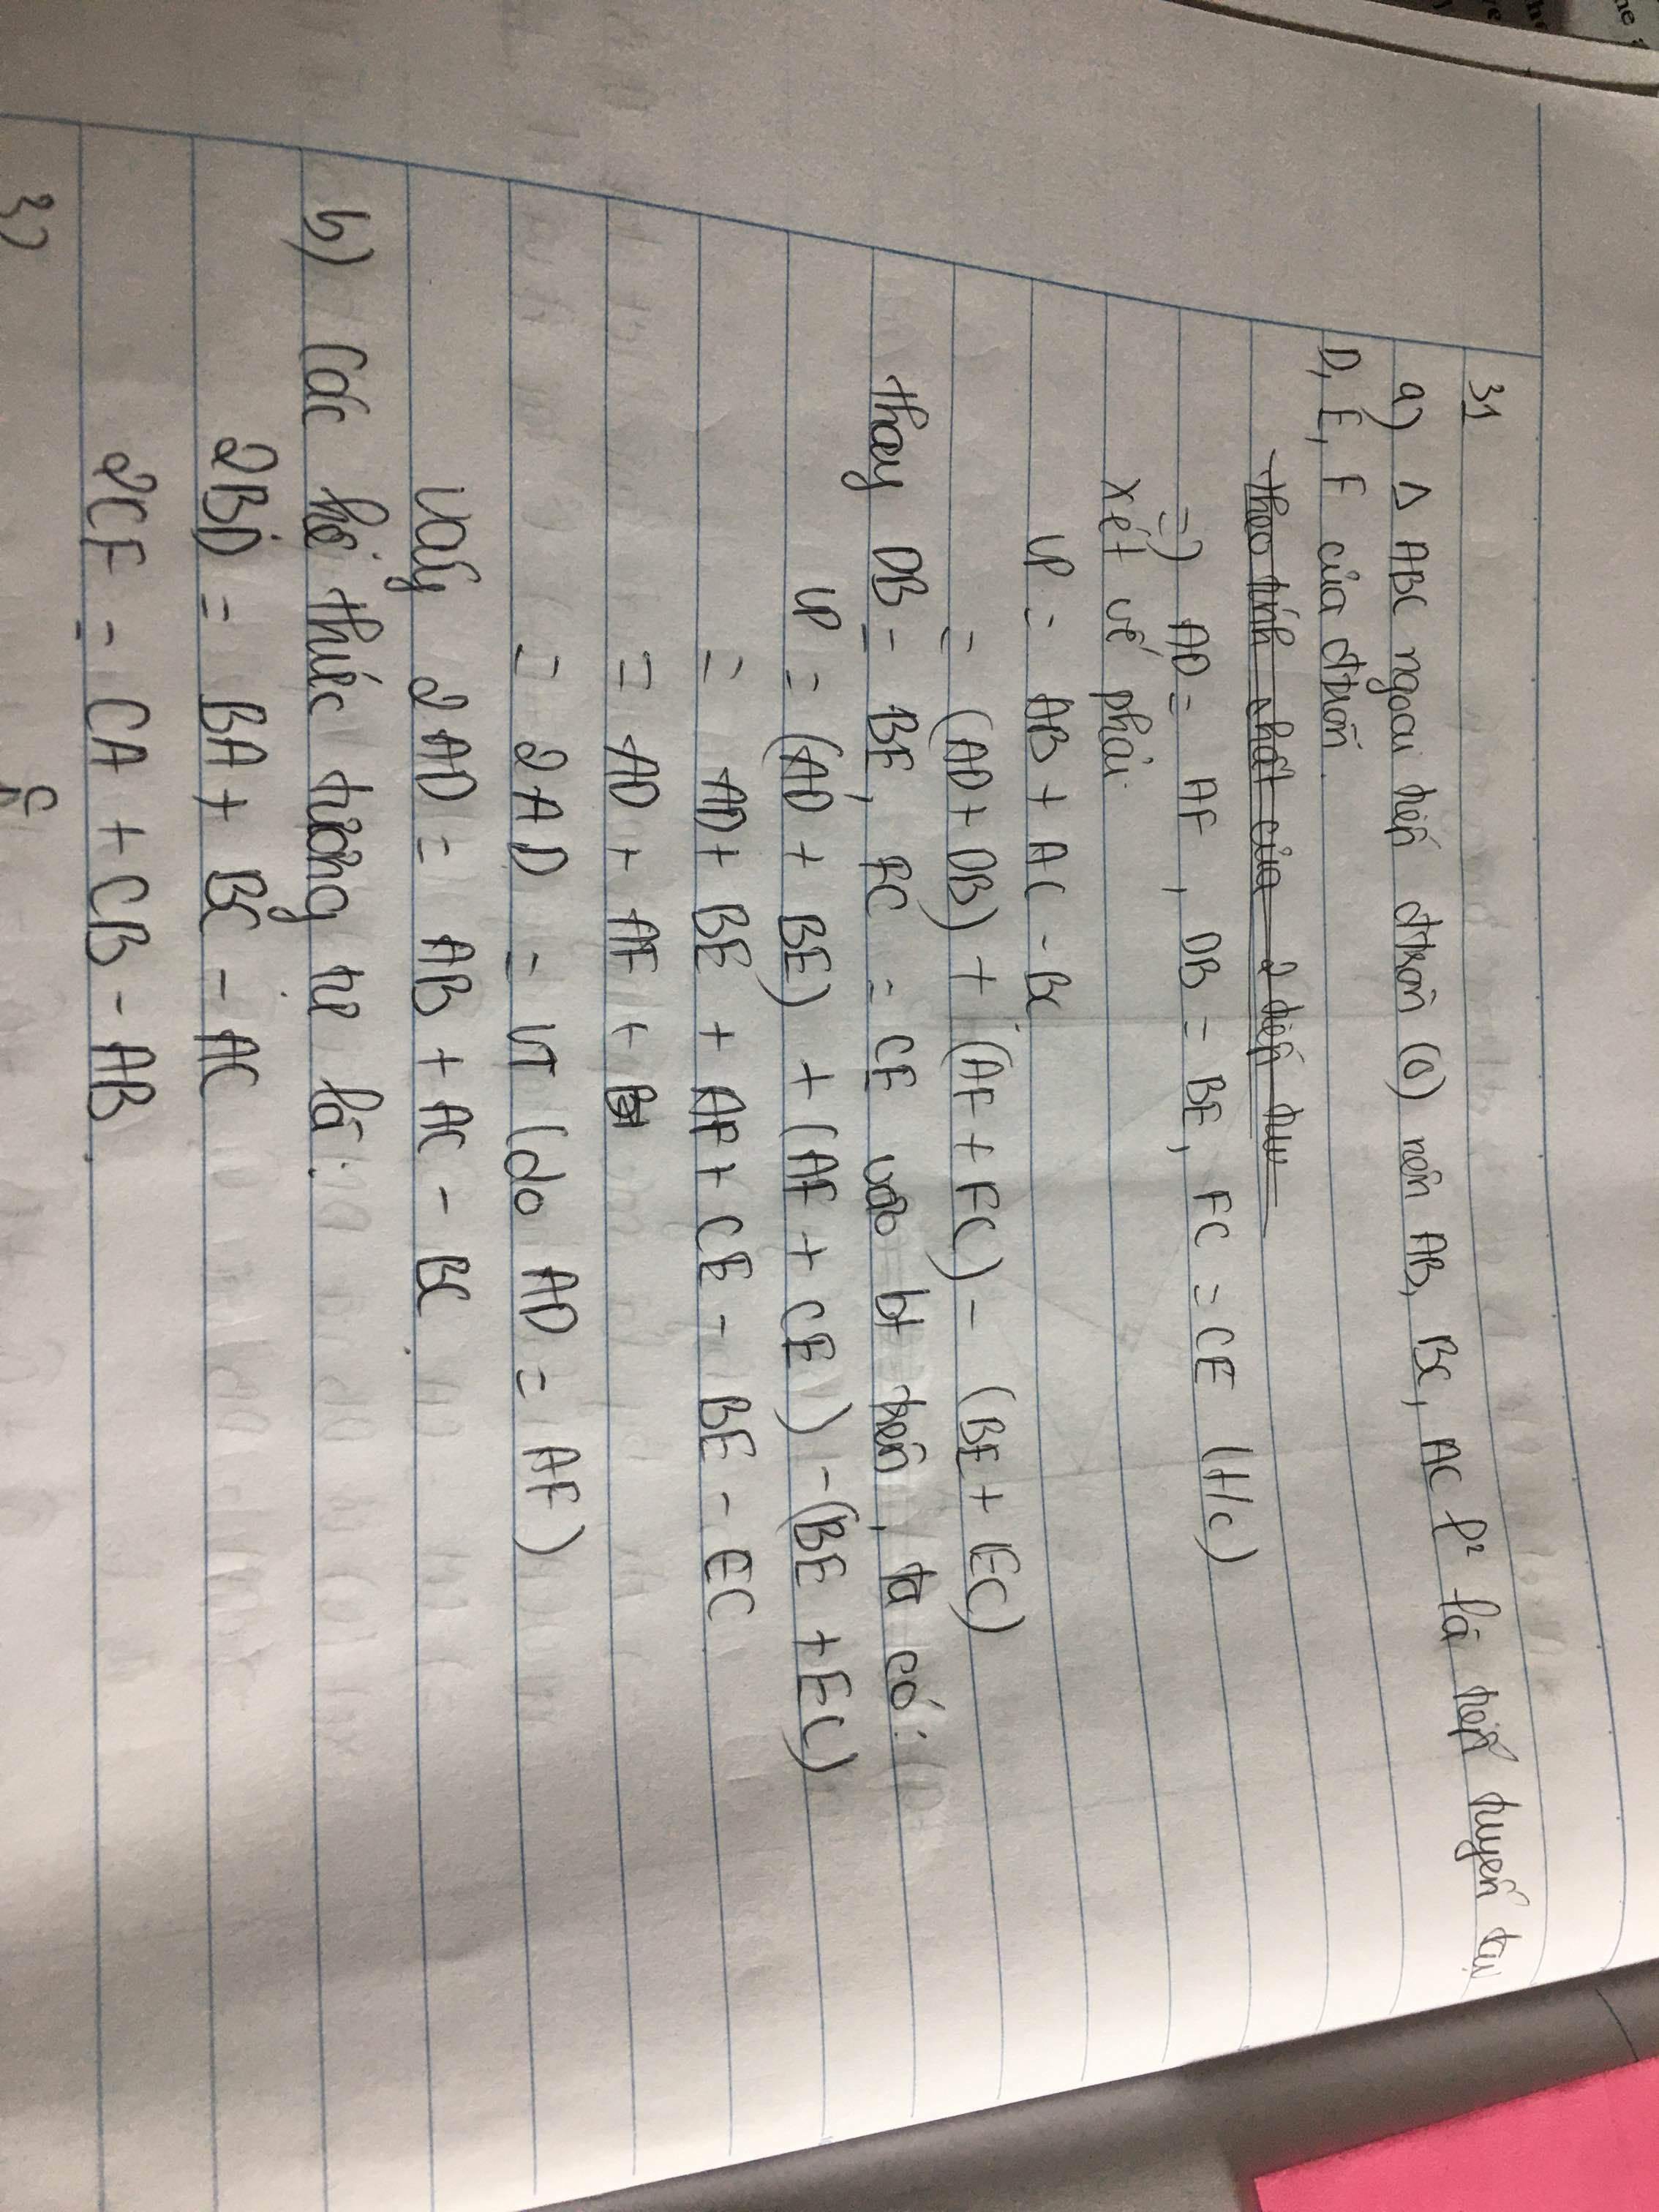 31
a) Δ ABC ngoại tiếp đtròn (O) nên AB, BC, AC l² là tiếp tuyến tại
D, E, F của đtròn.
theo tính chất của 2 tiếp tuy
=) AD = AF, DB = BE, FC = CE (t/c)
xét vế phải:
VP = AB + AC - BC
= (AD + DB) + (AF + FC) - (BE + EC)
Thay DB = BE, FC = CE vào bt trên, ta có:
VP = (AD + BE) + (AF + CE) - (BE + EC)
= AD + BE + AF + CE - BE - EC
= AD + AF +
= 2AD = VT (do AD = AF)
Vậy 2AD = AB + AC - BC
b) Các hệ thức tương tự là:
2BD = BA + BC - AC
2CF = CA + CB - AB.
32